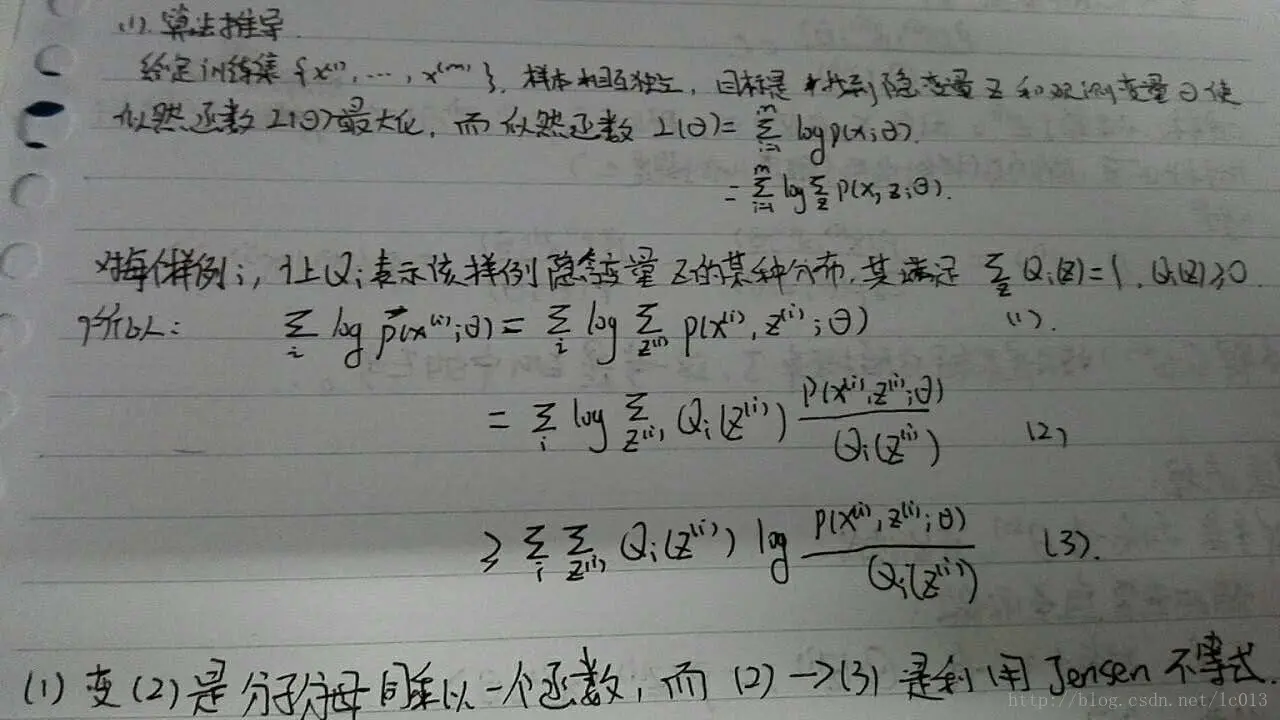 (1). 算法推导
给定训练集 {x⁽¹⁾, ..., x⁽ᵐ⁾}, 样本相互独立, 目标是找到隐变量 z 和观测变量 θ 使
似然函数 L(θ) 最大化, 而似然函数 L(θ) = ∑_{i=1}^{m} log p(x;θ).
= ∑_{i=1}^{m} log ∑_z p(x,z;θ).
对每个样例i, 让Qᵢ表示该样例隐含变量 z 的某种分布, 其满足 ∑_z Qᵢ(z)=1, Qᵢ(z)≥0.
所以: ∑_i log p(x⁽ⁱ⁾;θ) = ∑_i log ∑_{z⁽ⁱ⁾} p(x⁽ⁱ⁾, z⁽ⁱ⁾;θ) (1).
= ∑_i log ∑_{z⁽ⁱ⁾} Qᵢ(z⁽ⁱ⁾) p(x⁽ⁱ⁾, z⁽ⁱ⁾;θ) / Qᵢ(z⁽ⁱ⁾) (2)
≥ ∑_i ∑_{z⁽ⁱ⁾} Qᵢ(z⁽ⁱ⁾) log p(x⁽ⁱ⁾, z⁽ⁱ⁾;θ) / Qᵢ(z⁽ⁱ⁾) (3).
(1) 变 (2) 是分子分母同乘以一个函数, 而 (2) → (3) 是利用 Jensen 不等式.
http://blog.csdn.net/lc013